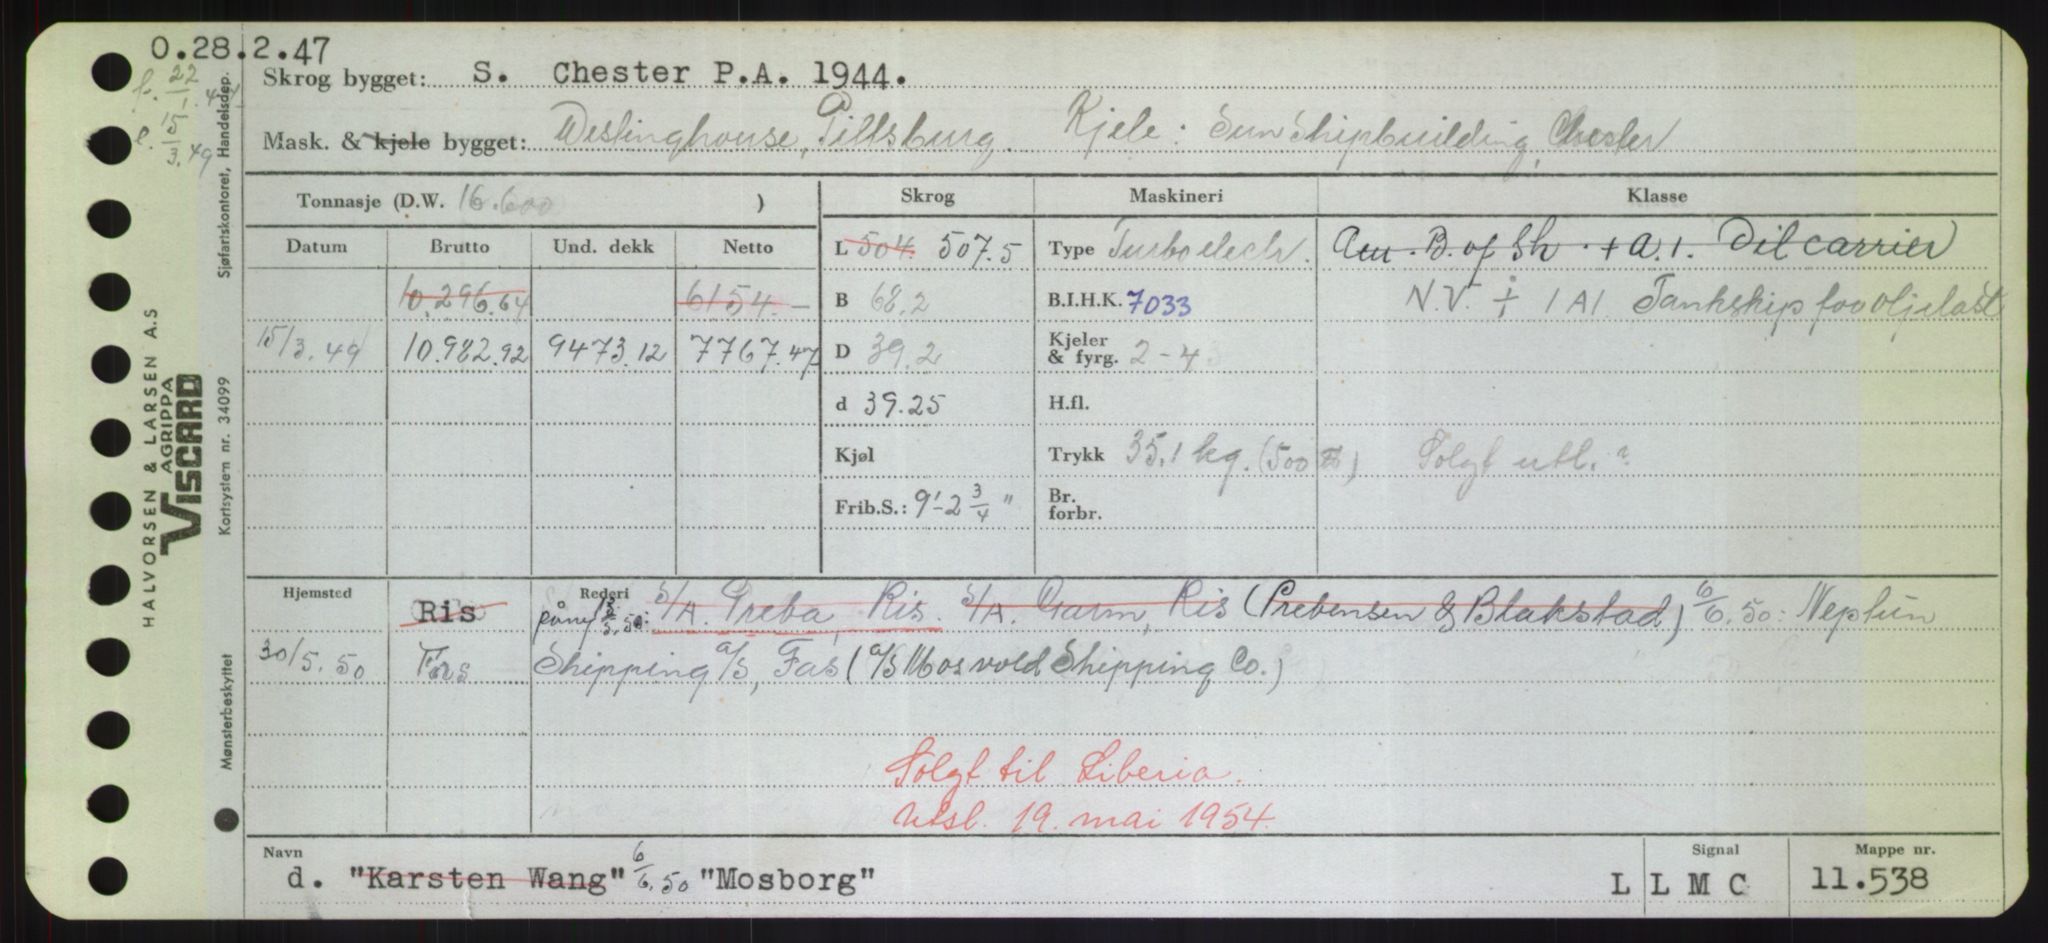 O.28.2.47
f. 22/1.47
l. 15/3.49
Skrog bygget: S. Chester P.A. 1944.
Mask. & kjele bygget: Westinghouse, Pittsburg. Kjele: Sun Shipbuilding, Chester
Tonnasje (D.W. 16.600 )
Skrog Maskineri Klasse
Datum Brutto Und. dekk Netto
L 504. 507.5 Type Turboelectr. Am. B. of Sh. + A.1. Oil carrier
10.296.64 6154.—
B 68.2 B.I.H.K. 7033 N.V. + 1A1 Tankskip for oljelast
15/3.49 10.982.92 9473.12 7767.47
D 39.2 Kjeler & fyrg. 2-4
d 39.25 H.fl.
Kjøl Trykk 35.1 kg. (500 ℔) Solgt utl. ?
Frib.S.: 9'-2 3/4" Br. forbr.
Hjemsted Rederi
Ris påny S/A. Preba, Ris. S/A. Garm, Ris (Prebensen & Blakstad) 6/6.50: Neptun
30/5.50 Fas Shipping a/s, Fas (a/s Mosvold Shipping Co.)
Solgt til Liberia.
Utsl. 19. mai 1954.
Navn Signal Mappe nr.
d. "Karsten Wang" 6/6.50 "Mosborg" L L M C 11.538
HALVORSEN & LARSEN A.S
AGRIPPA
VISCARD
Mønsterbeskyttet Kortsystem nr. 34099 Sjøfartskontoret, Handelsdep.